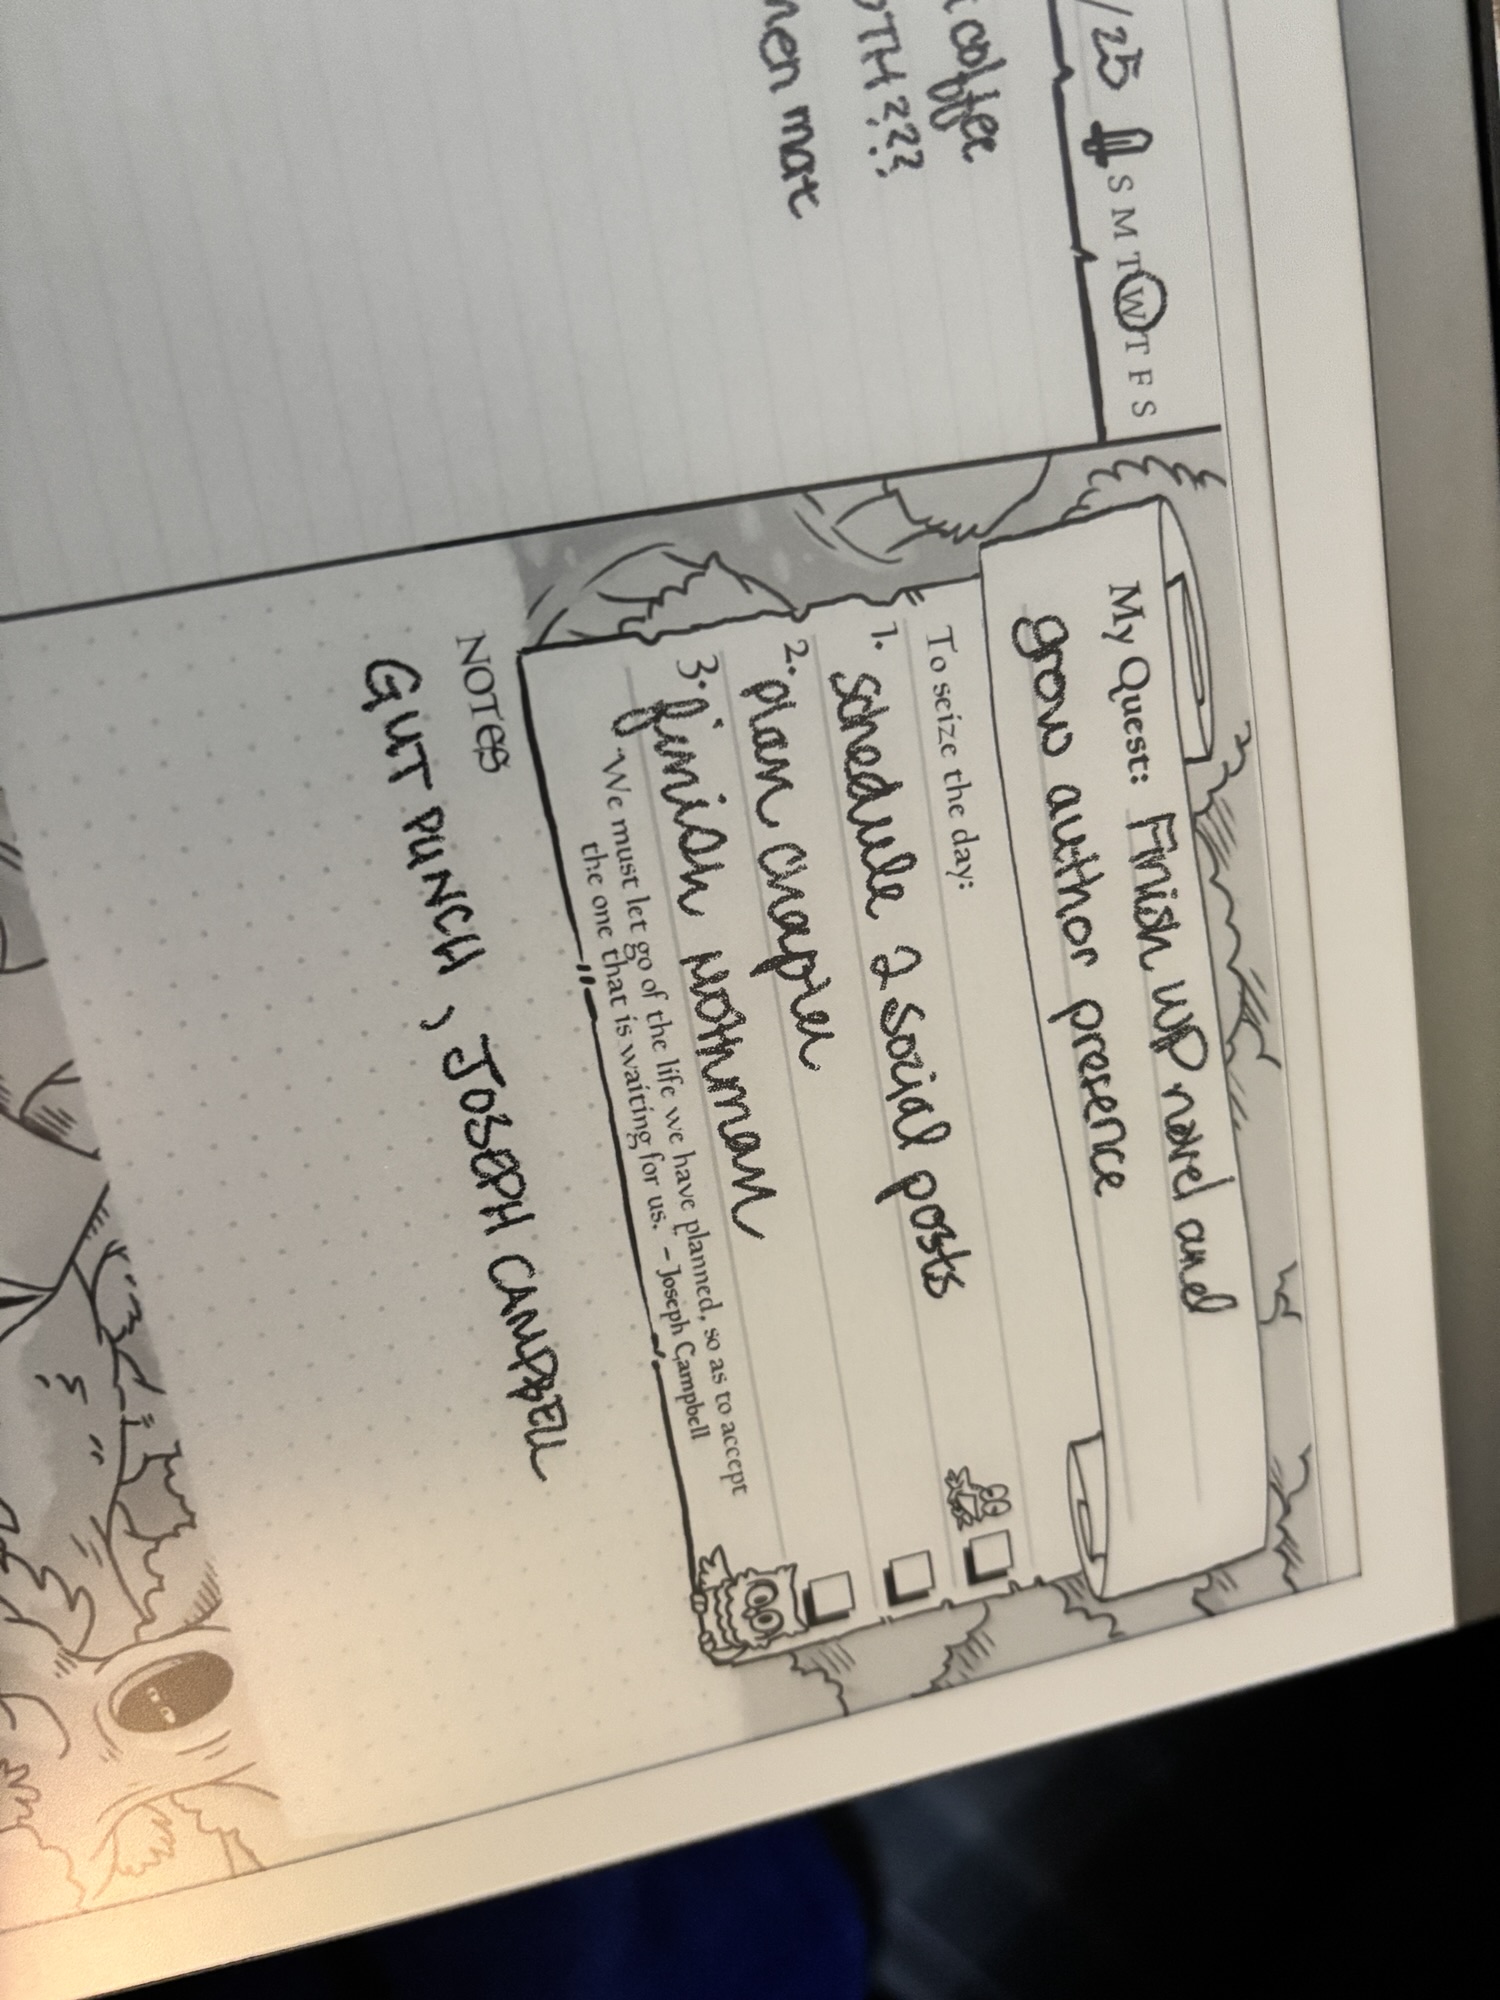 /25 S M T W T F S
coffee
OTH???
men mat
My Quest: Finish WP novel and
grow author presence
To seize the day:
1. schedule 2 social posts
2. plan chapter
3. finish Nothman
"We must let go of the life we have planned, so as to accept
the one that is waiting for us." - Joseph Campbell
NOTES
GUT PUNCH, JOSEPH CAMPBELL